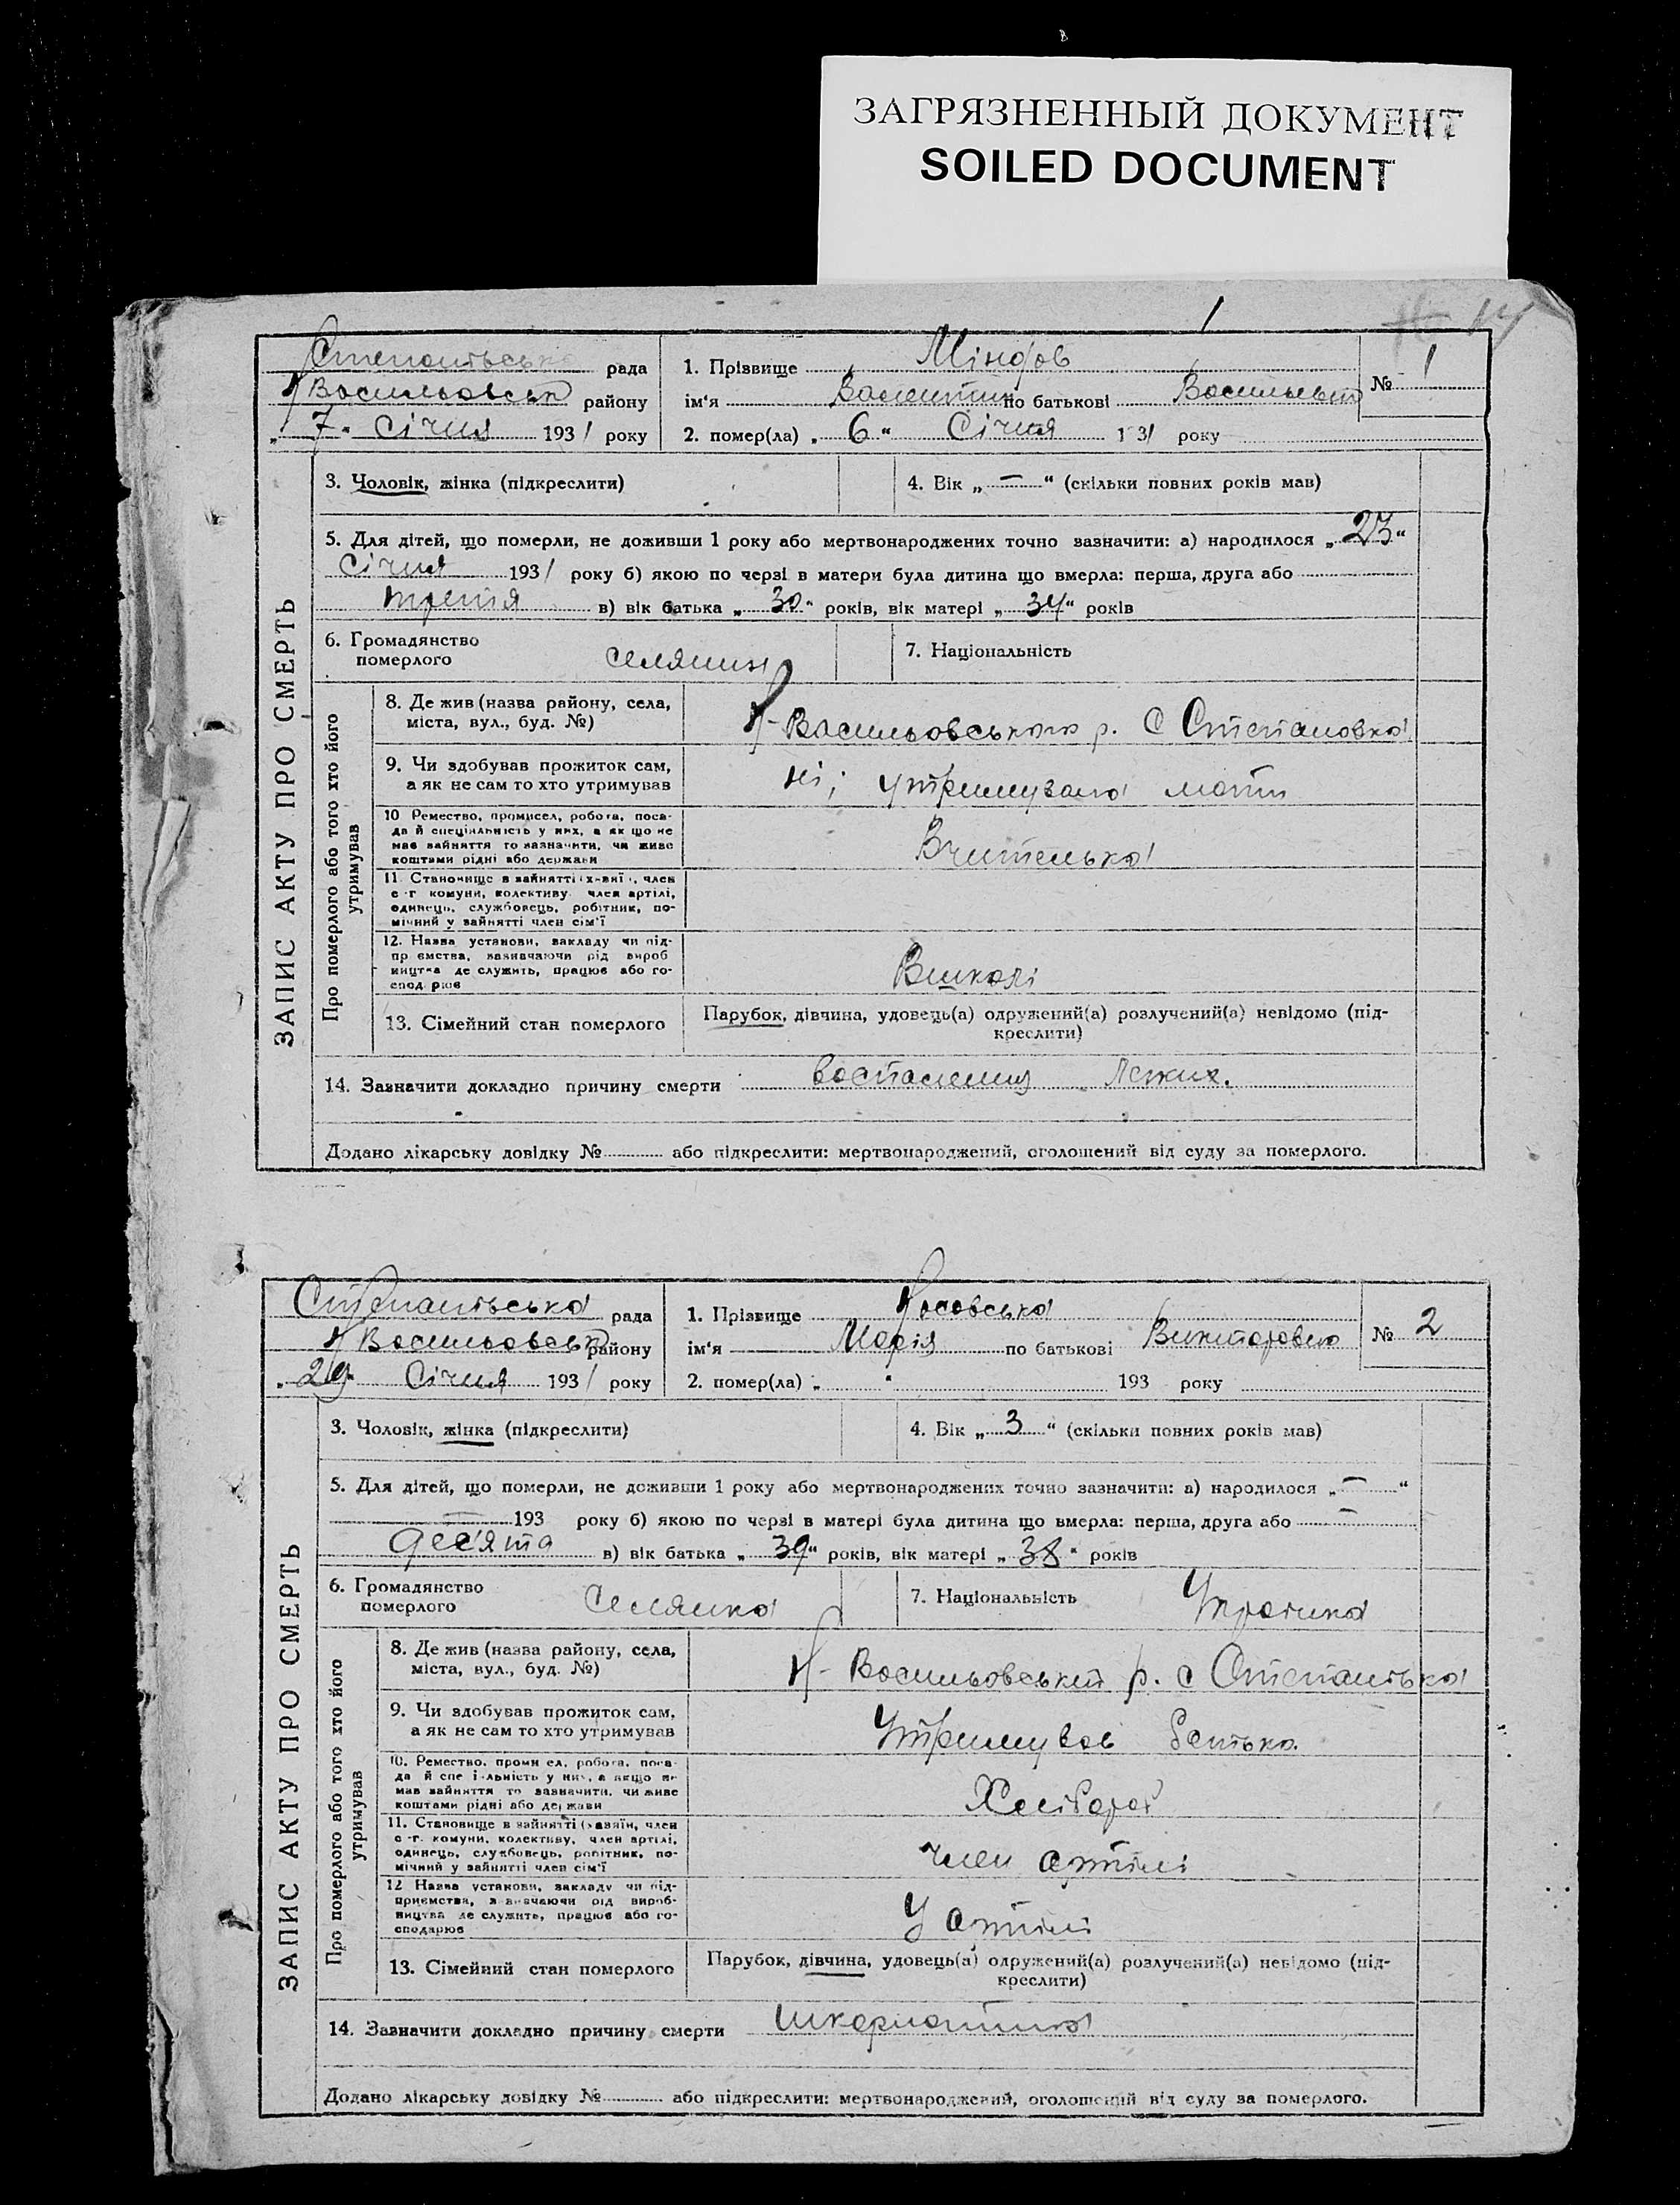 ЗАГРЯЗНЕННЫЙ ДОКУМЕНТ
SOILED DOCUMENT
1
14
рада
1. Прізвище Мінфов
№ 1
Н Васильовськ району
ім'я Валентин по батькові Васильевич
„ 7 " Січня 1931 року
2. помер(ла) „ 6 " Січня 1 31 року
ЗАПИС АКТУ ПРО СМЕРТЬ
3. Чоловік, жінка (підкреслити)
4. Вік „ — " (скільки повних років мав)
5. Для дітей, що померли, не доживши 1 року або мертвонароджених точно зазначити: а) народилося „ 23 "
Січня 1931 року б) якою по черзі в матери була дитина що вмерла: перша, друга або
третя в) вік батька „ 30 " років, вік матері „ 34 " років
6. Громадянство померлого селянин
7. Національність
Про померлого або того хто його утримував
8. Де жив (назва району, села,
міста, вул., буд. №)
Н-Васильовського р. С Степановка
9. Чи здобував прожиток сам,
а як не сам то хто утримував
ні, утримувала мати
10 Ремество, промисел, робота, поса-
да й спеціяльність у них, а як що не
мав зайняття то зазначити, чи живе
коштами рідні або держави
Вчителька
11. Становище в зайнятті (х-вяї ), член
с -г комуни, колективу член артілі,
одинець, службовець, робітник, по-
мічний у зайнятті член сім'ї
12. Назва установи, закладу чи під-
пр ємства, зазначаючи рід вироб
ництва де служить, працює або го-
спод рює
Вшколі
13. Сімейний стан померлого
Парубок, дівчина, удовець(а) одружений(а) розлучений(а) невідомо (під-
креслити)
14. Зазначити докладно причину смерти воспаления Легких.
Додано лікарську довідку № або підкреслити: мертвонароджений, оголошений від суду за померлого.
Степанівська рада
1. Прізвище Косовська
№ 2
Н Васильовськ району
ім'я Марія по батькові Викторовна
„ 29 " Січня 1931 року
2. помер(ла) „ " 193 року
ЗАПИС АКТУ ПРО СМЕРТЬ
3. Чоловік, жінка (підкреслити)
4. Вік „ 3 " (скільки повних років мав)
5. Для дітей, що померли, не доживши 1 року або мертвонароджених точно зазначити: а) народилося „ — "
— 193 року б) якою по черзі в матері була дитина що вмерла: перша, друга або —
дес'ята в) вік батька „ 39 " років, вік матері „ 38 " років
6. Громадянство померлого Селянка
7. Національність Українка
Про померлого або того хто його утримував
8. Де жив (назва району, села,
міста, вул., буд. №)
Н- Васильовський р. с
9. Чи здобував прожиток сам,
а як не сам то хто утримував
Утримував батько.
10. Ремество, проми ел, робота, поса-
да й спе і льність у них, а якщо не
мав зайняття то зазначити, чи живе
коштами рідні або держави
Хлібороб
11. Становище в зайнятті (хазяїн, член
с -г. комуни, колективу, член артілі,
одинець, службовець, робітник, по-
мічний у зайнятті член сім'ї
член артілі
12 Назва установи, закладу чи під-
приємства, зазначаючи рід вироб-
ництва де служить, працює або го-
сподарює
У артілі
13. Сімейний стан померлого
Парубок, дівчина, удовець(а) одружений(а) розлучений(а) невідомо (під-
креслити)
14. Зазначити докладно причину смерти шкарлатина
Додано лікарську довідку № або підкреслити: мертвонароджений, оголошений від суду за померлого.